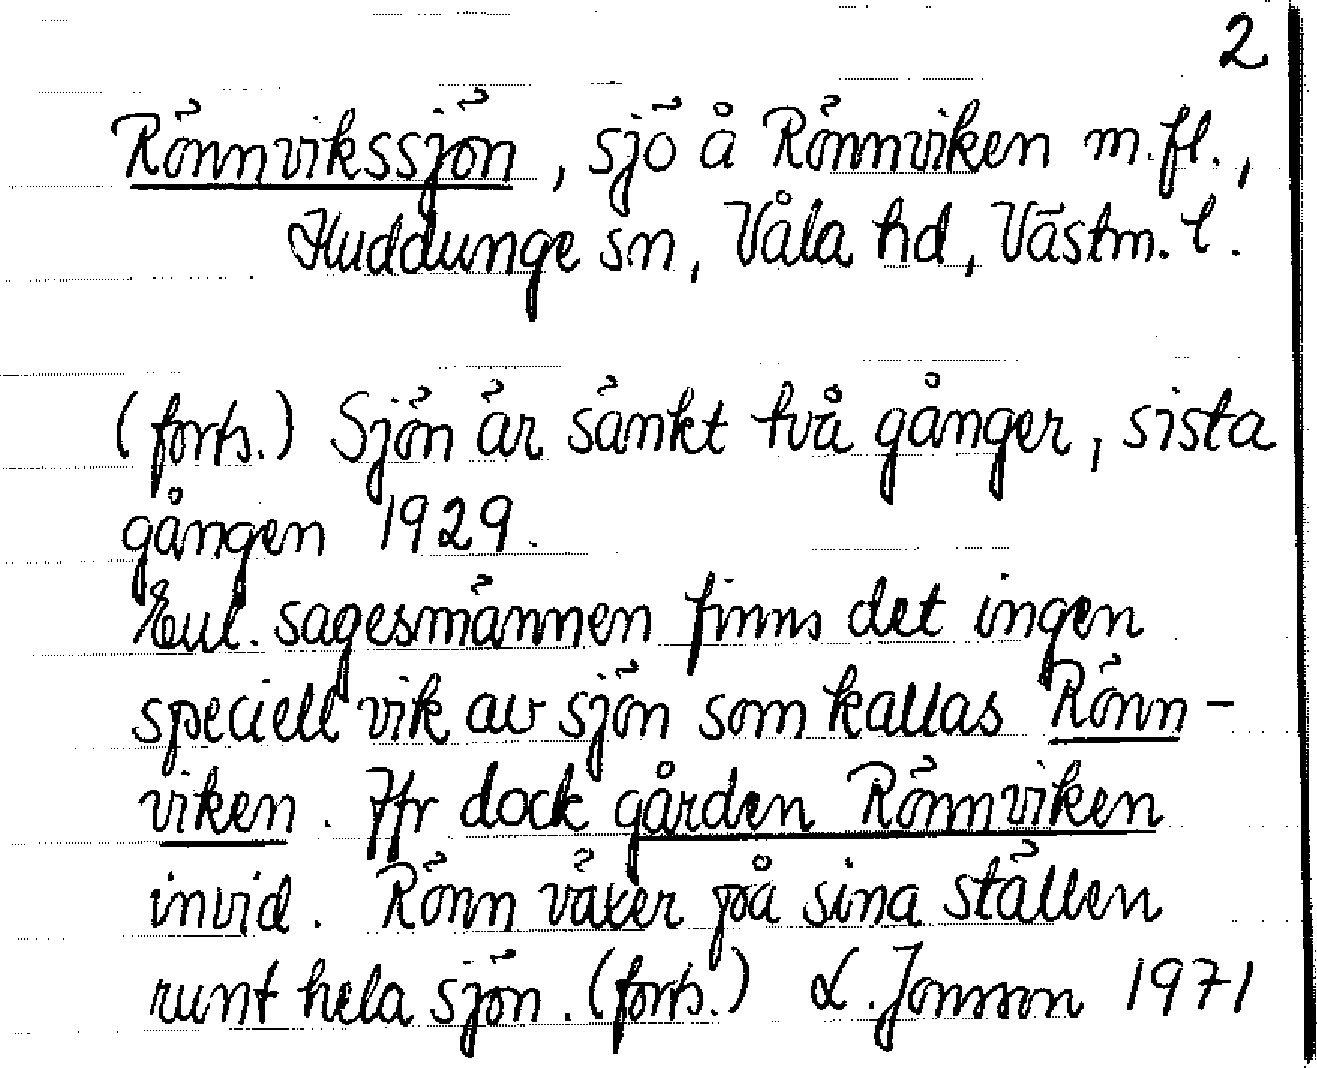 2
Rönnvikssjön, sjö å Rönnviken m.fl.,
Huddunge sn, Våla hd, Västm. l.
(forts.) Sjön är sänkt två gånger, sista
gången 1929.
Enl. sagesmännen finns det ingen
speciell vik av sjön som kallas Rönn-
viken. Jfr dock gården Rönnviken
invid. Rönn växer på sina ställen
runt hela sjön. (forts.) L. Jonsson 1971